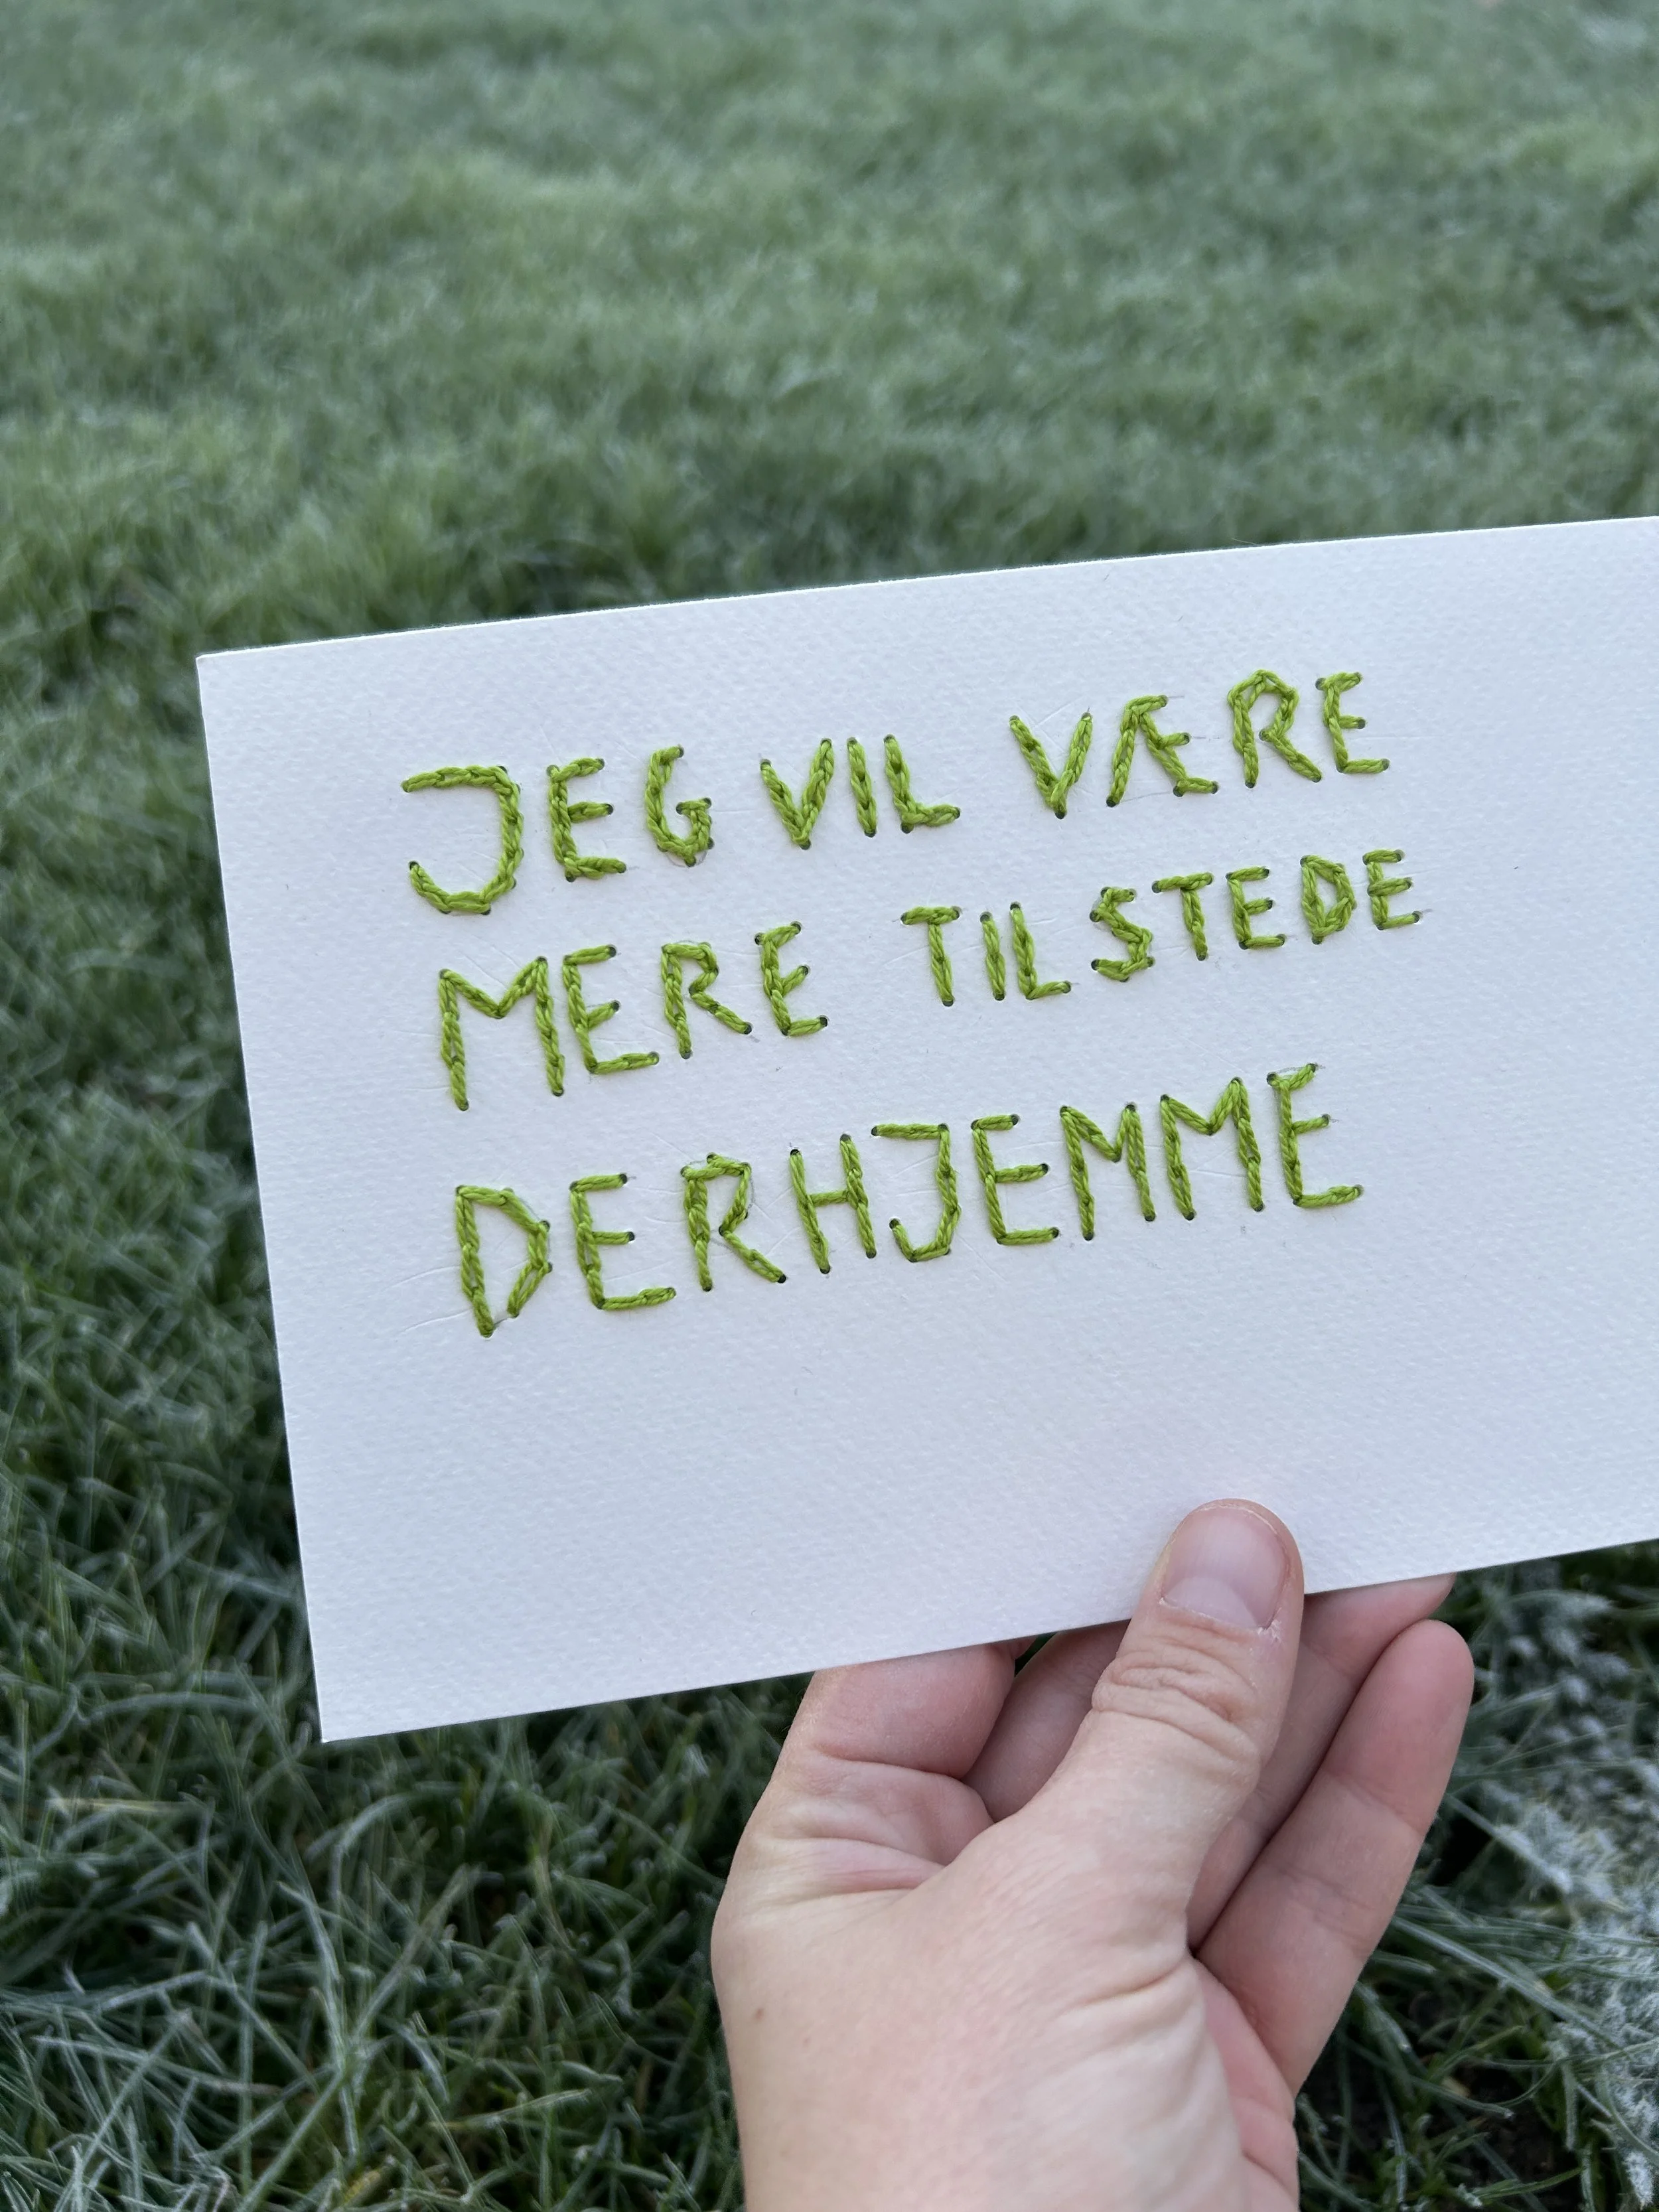 JEG VIL VÆRE
MERE TILSTEDE
DERHJEMME